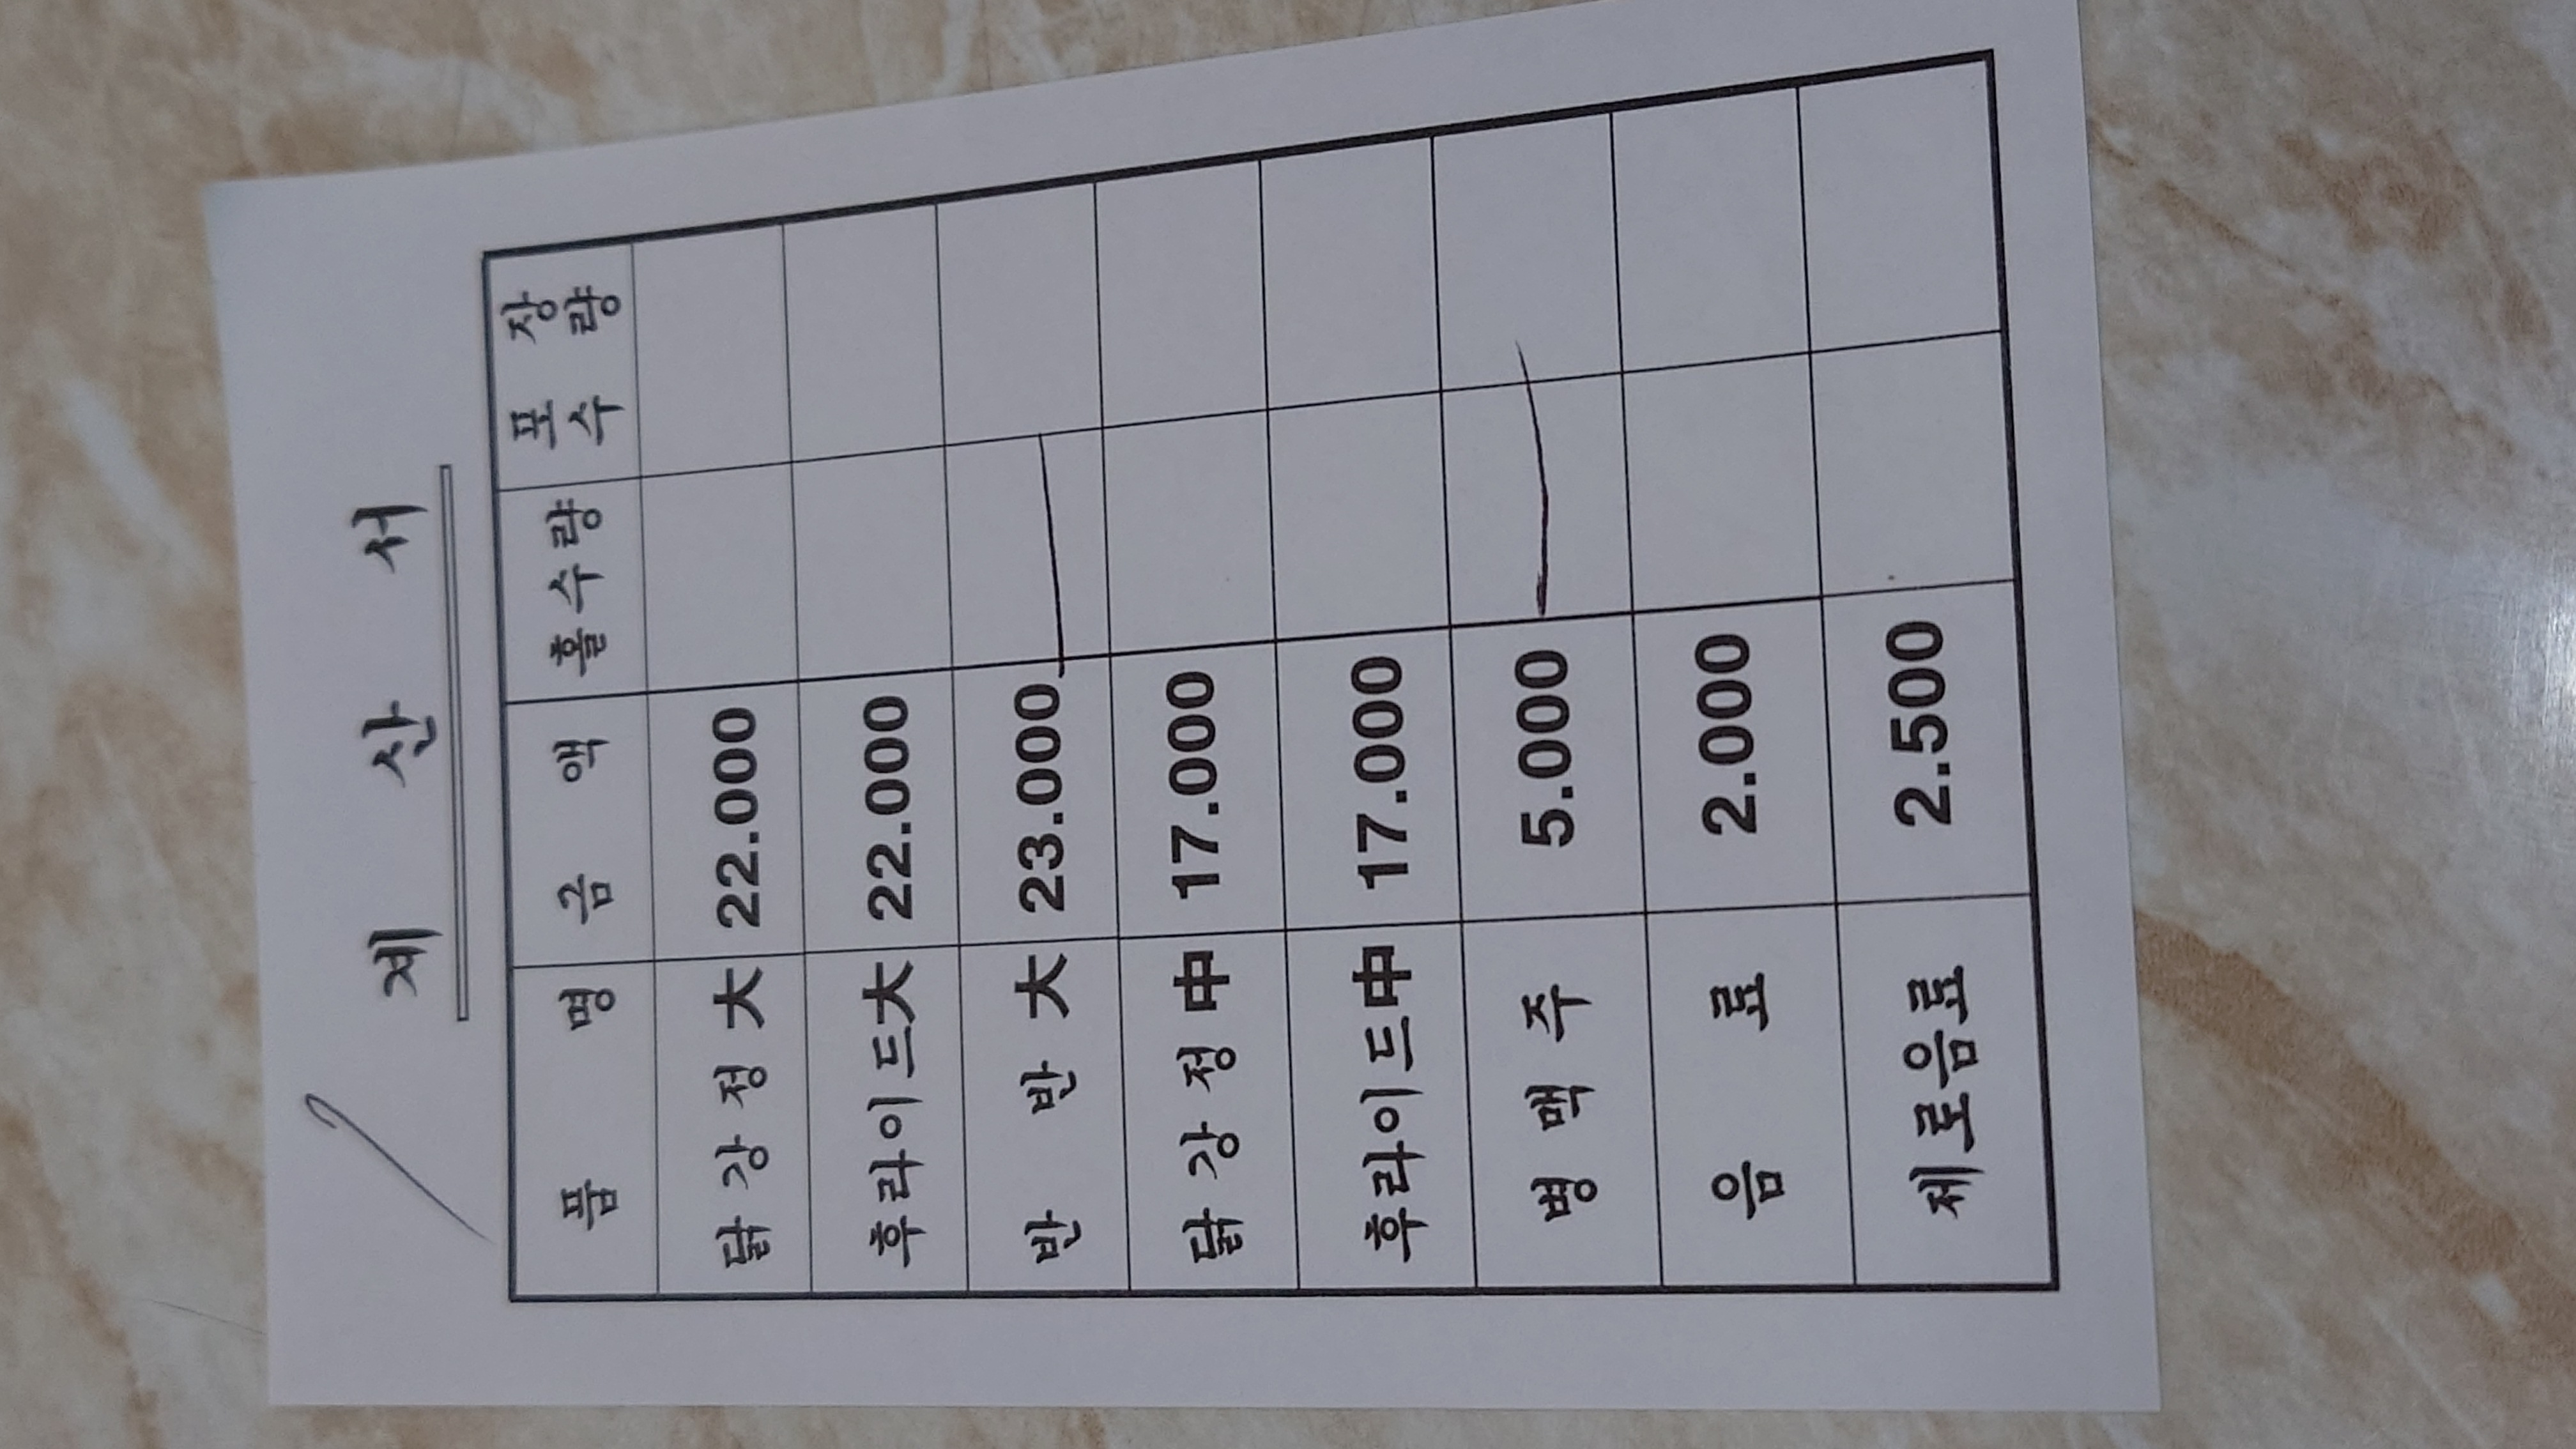 계 산 서
품 명 금 액 홀수량 포 장 수 량
닭강정大 22.000
후라이드大 22.000
반 반 大 23.000
닭강정中 17.000
후라이드中 17.000
병 맥 주 5.000
음 료 2.000
제로음료 2.500